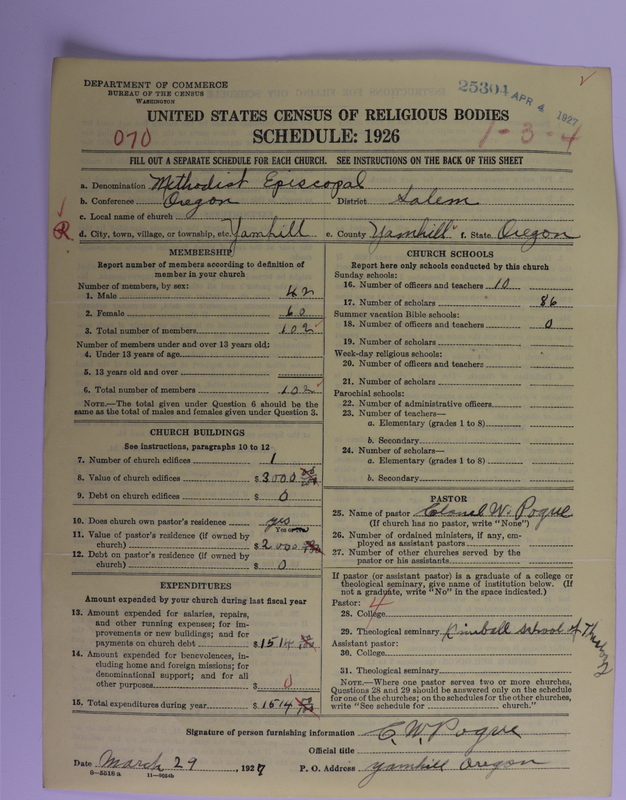 DEPARTMENT OF COMMERCE
BUREAU OF THE CENSUS
WASHINGTON
25304 APR 4 1927
UNITED STATES CENSUS OF RELIGIOUS BODIES
070 SCHEDULE: 1926 1-3-4
FILL OUT A SEPARATE SCHEDULE FOR EACH CHURCH. SEE INSTRUCTIONS ON THE BACK OF THIS SHEET
a. Denomination Methodist Episcopal
b. Conference Oregon District Salem
c. Local name of church
R d. City, town, village, or township, etc. Yamhill e. County Yamhill f. State Oregon
MEMBERSHIP
Report number of members according to definition of
member in your church
Number of members, by sex:
1. Male 42
2. Female 60
3. Total number of members 102
Number of members under and over 13 years old:
4. Under 13 years of age
5. 13 years old and over
6. Total number of members 102
NOTE.—The total given under Question 6 should be the
same as the total of males and females given under Question 3.
CHURCH BUILDINGS
See instructions, paragraphs 10 to 12
7. Number of church edifices 1
8. Value of church edifices $ 3000
9. Debt on church edifices $ 0
10. Does church own pastor's residence yes
Yes or No
11. Value of pastor's residence (if owned by
church) $ 2000
12. Debt on pastor's residence (if owned by
church) $ 0
EXPENDITURES
Amount expended by your church during last fiscal year
13. Amount expended for salaries, repairs,
and other running expenses; for im-
provements or new buildings; and for
payments on church debt $ 1514
14. Amount expended for benevolences, in-
cluding home and foreign missions; for
denominational support; and for all
other purposes $ 0
15. Total expenditures during year $ 1514
CHURCH SCHOOLS
Report here only schools conducted by this church
Sunday schools:
16. Number of officers and teachers 10
17. Number of scholars 86
Summer vacation Bible schools:
18. Number of officers and teachers 0
19. Number of scholars
Week-day religious schools:
20. Number of officers and teachers
21. Number of scholars
Parochial schools:
22. Number of administrative officers
23. Number of teachers—
a. Elementary (grades 1 to 8)
b. Secondary
24. Number of scholars—
a. Elementary (grades 1 to 8)
b. Secondary
PASTOR
25. Name of pastor Colonel W. Pogue
(If church has no pastor, write "None")
26. Number of ordained ministers, if any, em-
ployed as assistant pastors
27. Number of other churches served by the
pastor or his assistants
If pastor (or assistant pastor) is a graduate of a college or
theological seminary, give name of institution below. (If
not a graduate, write "No" in the space indicated.)
Pastor: 4
28. College
29. Theological seminary Kimball school of
Assistant pastor:
30. College
31. Theological seminary
NOTE.—Where one pastor serves two or more churches,
Questions 28 and 29 should be answered only on the schedule
for one of the churches; on the schedules for the other churches,
write "See schedule for church."
Signature of person furnishing information C. W. Pogue
Official title
Date March 29, 1927 P. O. Address Yamhill Oregon
8—5518a 11—9024b